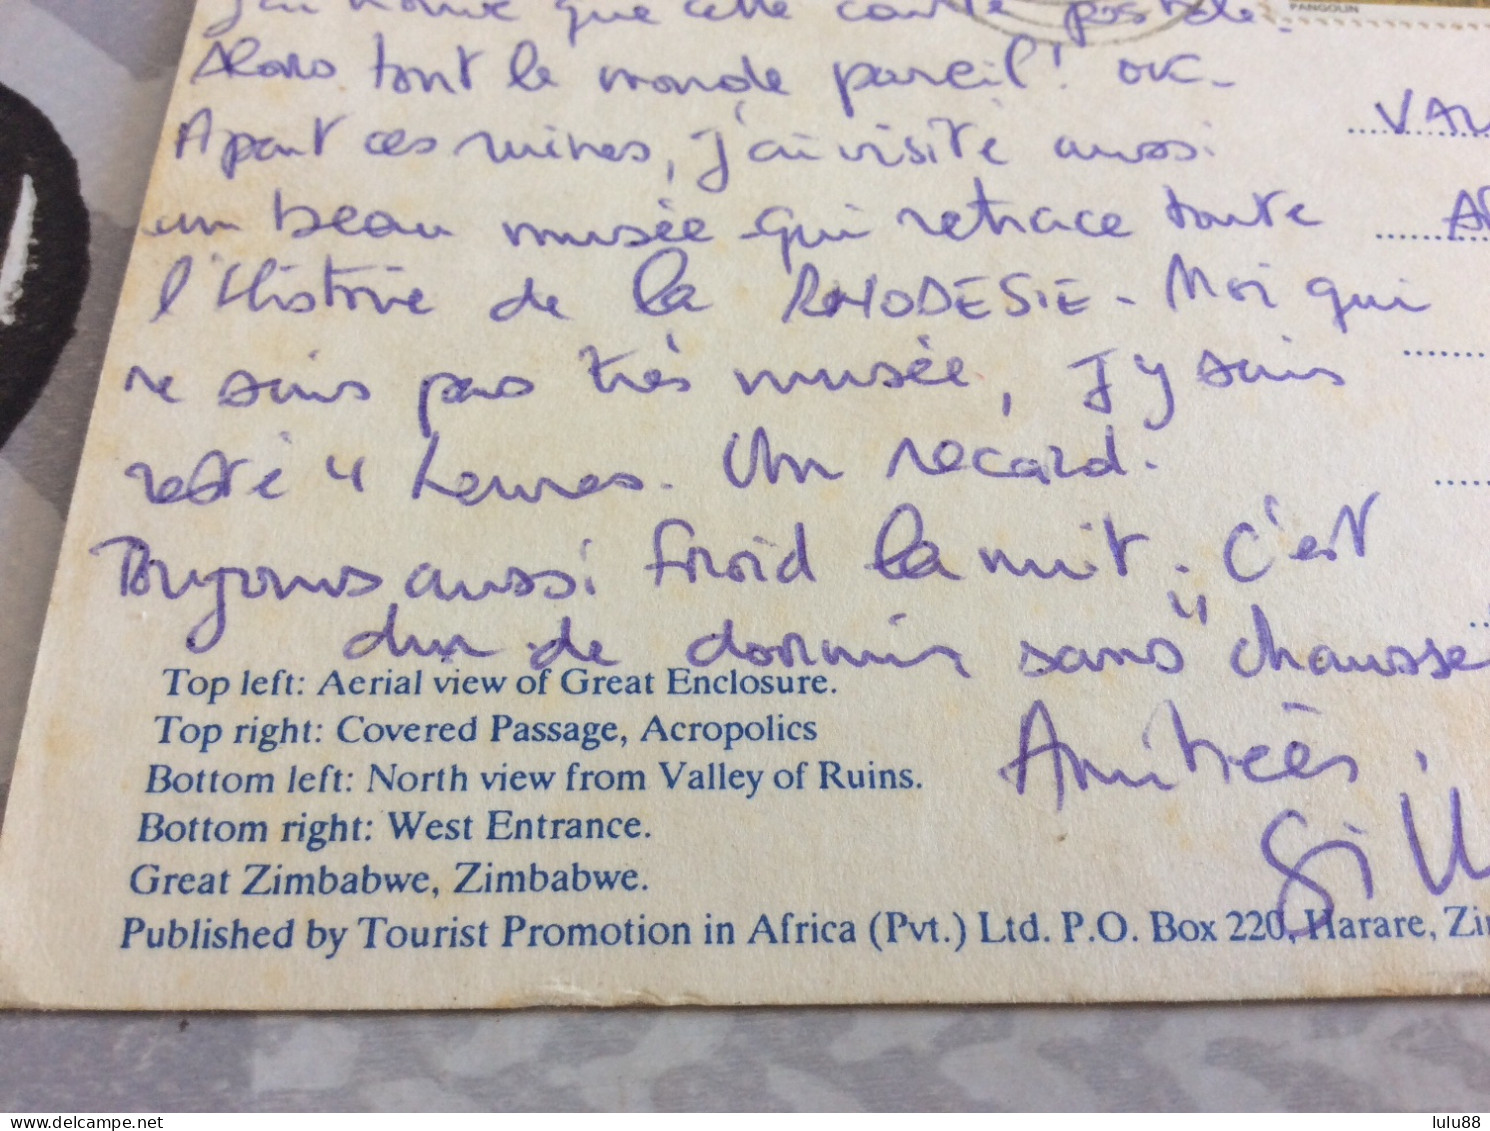 j'ai trouvé que cette carte postale.
PANGOLIN
Alors tout le monde pareil! OK.
Apart ces ruines, j'ai visité aussi
un beau musée qui retrace toute
l'Histoire de la RHODESIE - Moi qui
ne suis pas très musée, j'y suis
resté 4 heures. Un record.
Toujours aussi froid la nuit. C'est
dur de dormir sans "chausse
Amitiées,
Gill
VAU
Top left: Aerial view of Great Enclosure.
Top right: Covered Passage, Acropolics
Bottom left: North view from Valley of Ruins.
Bottom right: West Entrance.
Great Zimbabwe, Zimbabwe.
Published by Tourist Promotion in Africa (Pvt.) Ltd. P.O. Box 220, Harare, Zi
lulu88
delcampe.net